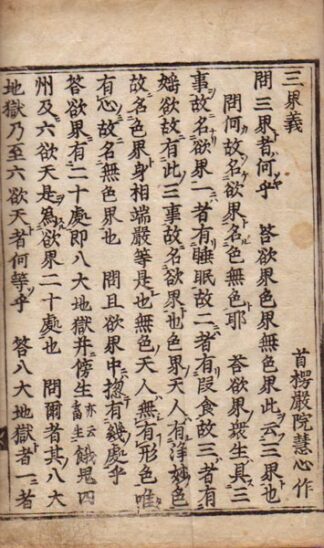 三界義　首楞嚴院慧心作
問三界者何乎　答欲界色界無色界此云三界也
問何故名欲界名色無色耶　答欲界衆生具三
事故名欲界一者有睡眠故二者有段食故三者有
婬欲故有此三事故名欲界也色界天人有淨妙色
故名色界身相端嚴等是也無色天人無有形色唯
有心故名無色界也　問且欲界中惣有幾處乎
答欲界有二十處即八大地獄并傍生亦云畜生餓鬼四
州及六欲天是爲欲界二十處也　問爾者其八大
地獄乃至六欲天者何等乎　答八大地獄者一者